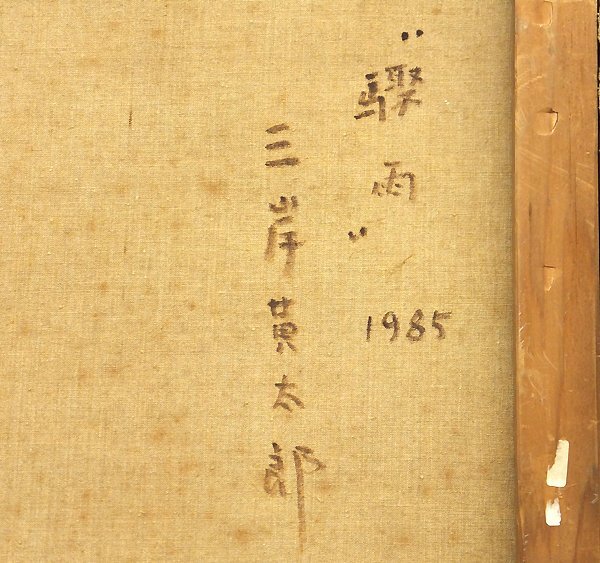 "驟雨"
1985
三岸黄太郎